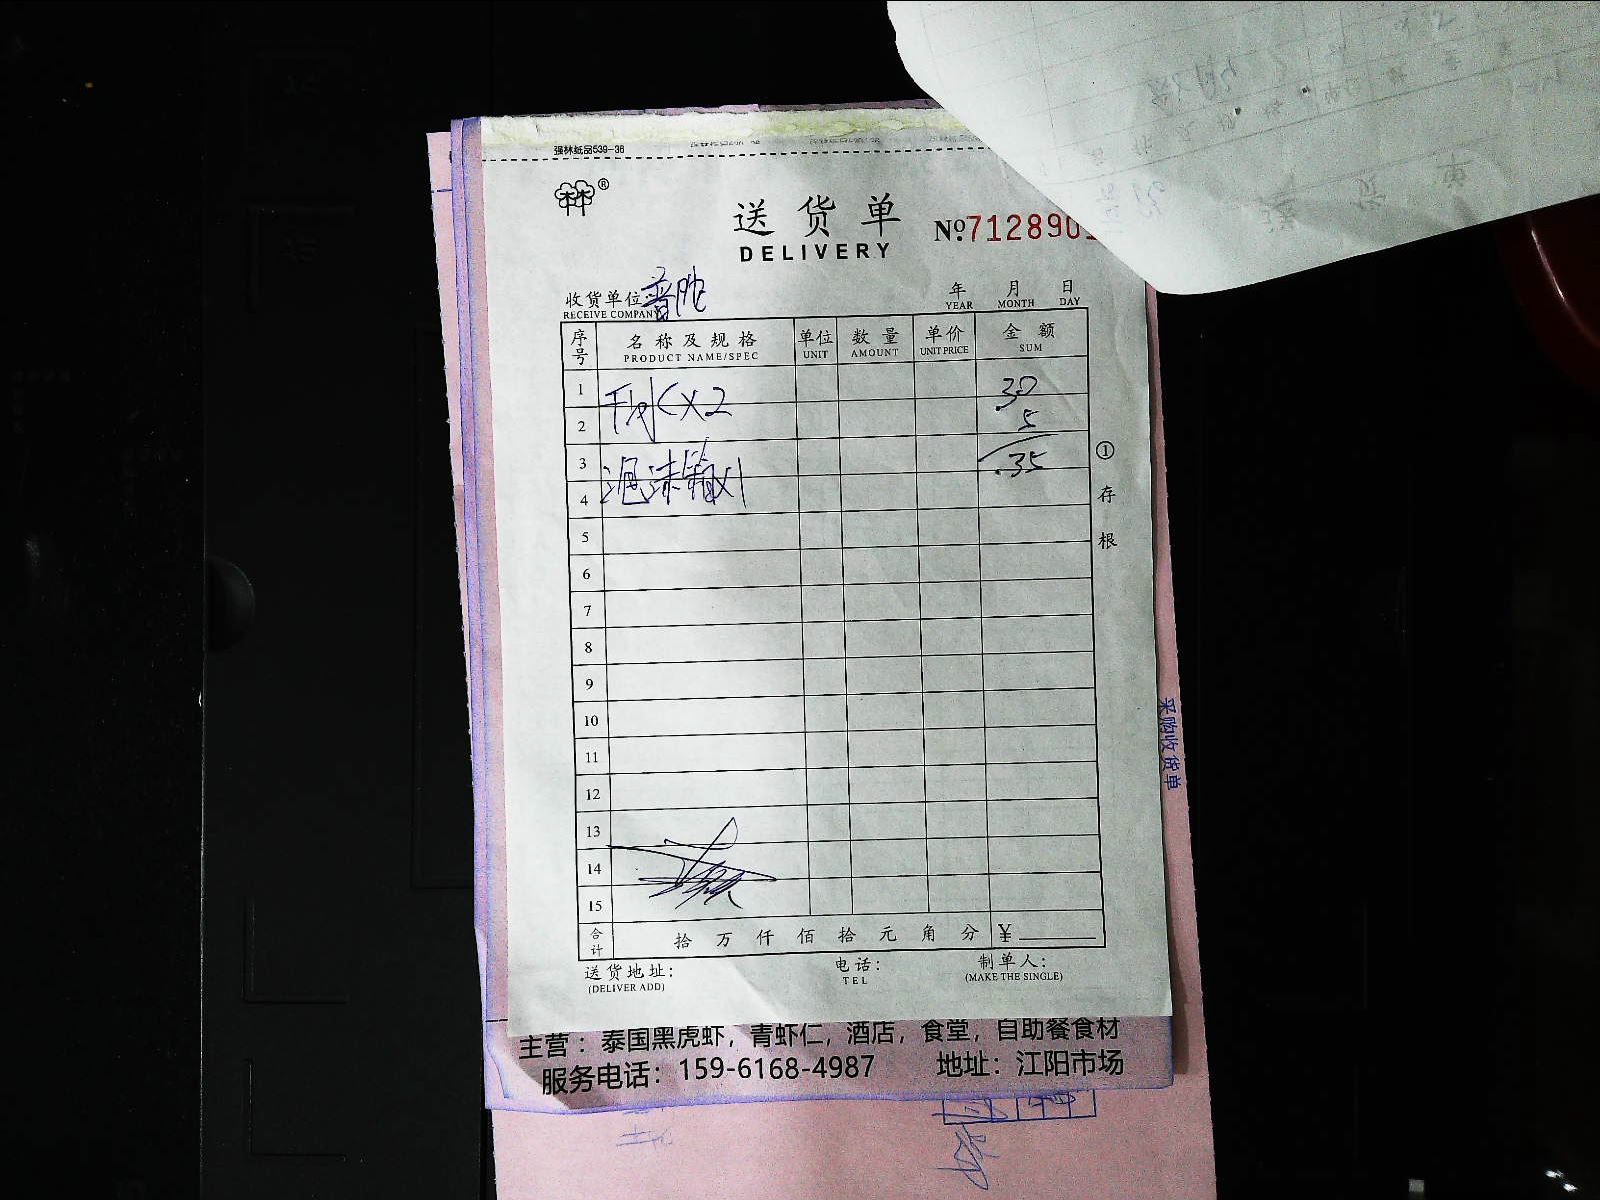 强林纸品539-36
林林®
送货单
DELIVERY
№7128901
收货单位 普陀
RECEIVE COMPANY
年 月 日
YEAR MONTH DAY
序号 名称及规格 单位 数量 单价 金额
PRODUCT NAME/SPEC UNIT AMOUNT UNIT PRICE SUM
1 30
2 X2 5
3 35
4 泡沫箱X1
5
6
7
8
9
10
11
12
13
14
15
合计 拾 万 仟 佰 拾 元 角 分 ¥
①存根
送货地址: 电话: 制单人:
(DELIVER ADD) TEL (MAKE THE SINGLE)
采购收货单
主营：泰国黑虎虾，青虾仁，酒店，食堂，自助餐食材
服务电话：159-6168-4987 地址：江阳市场